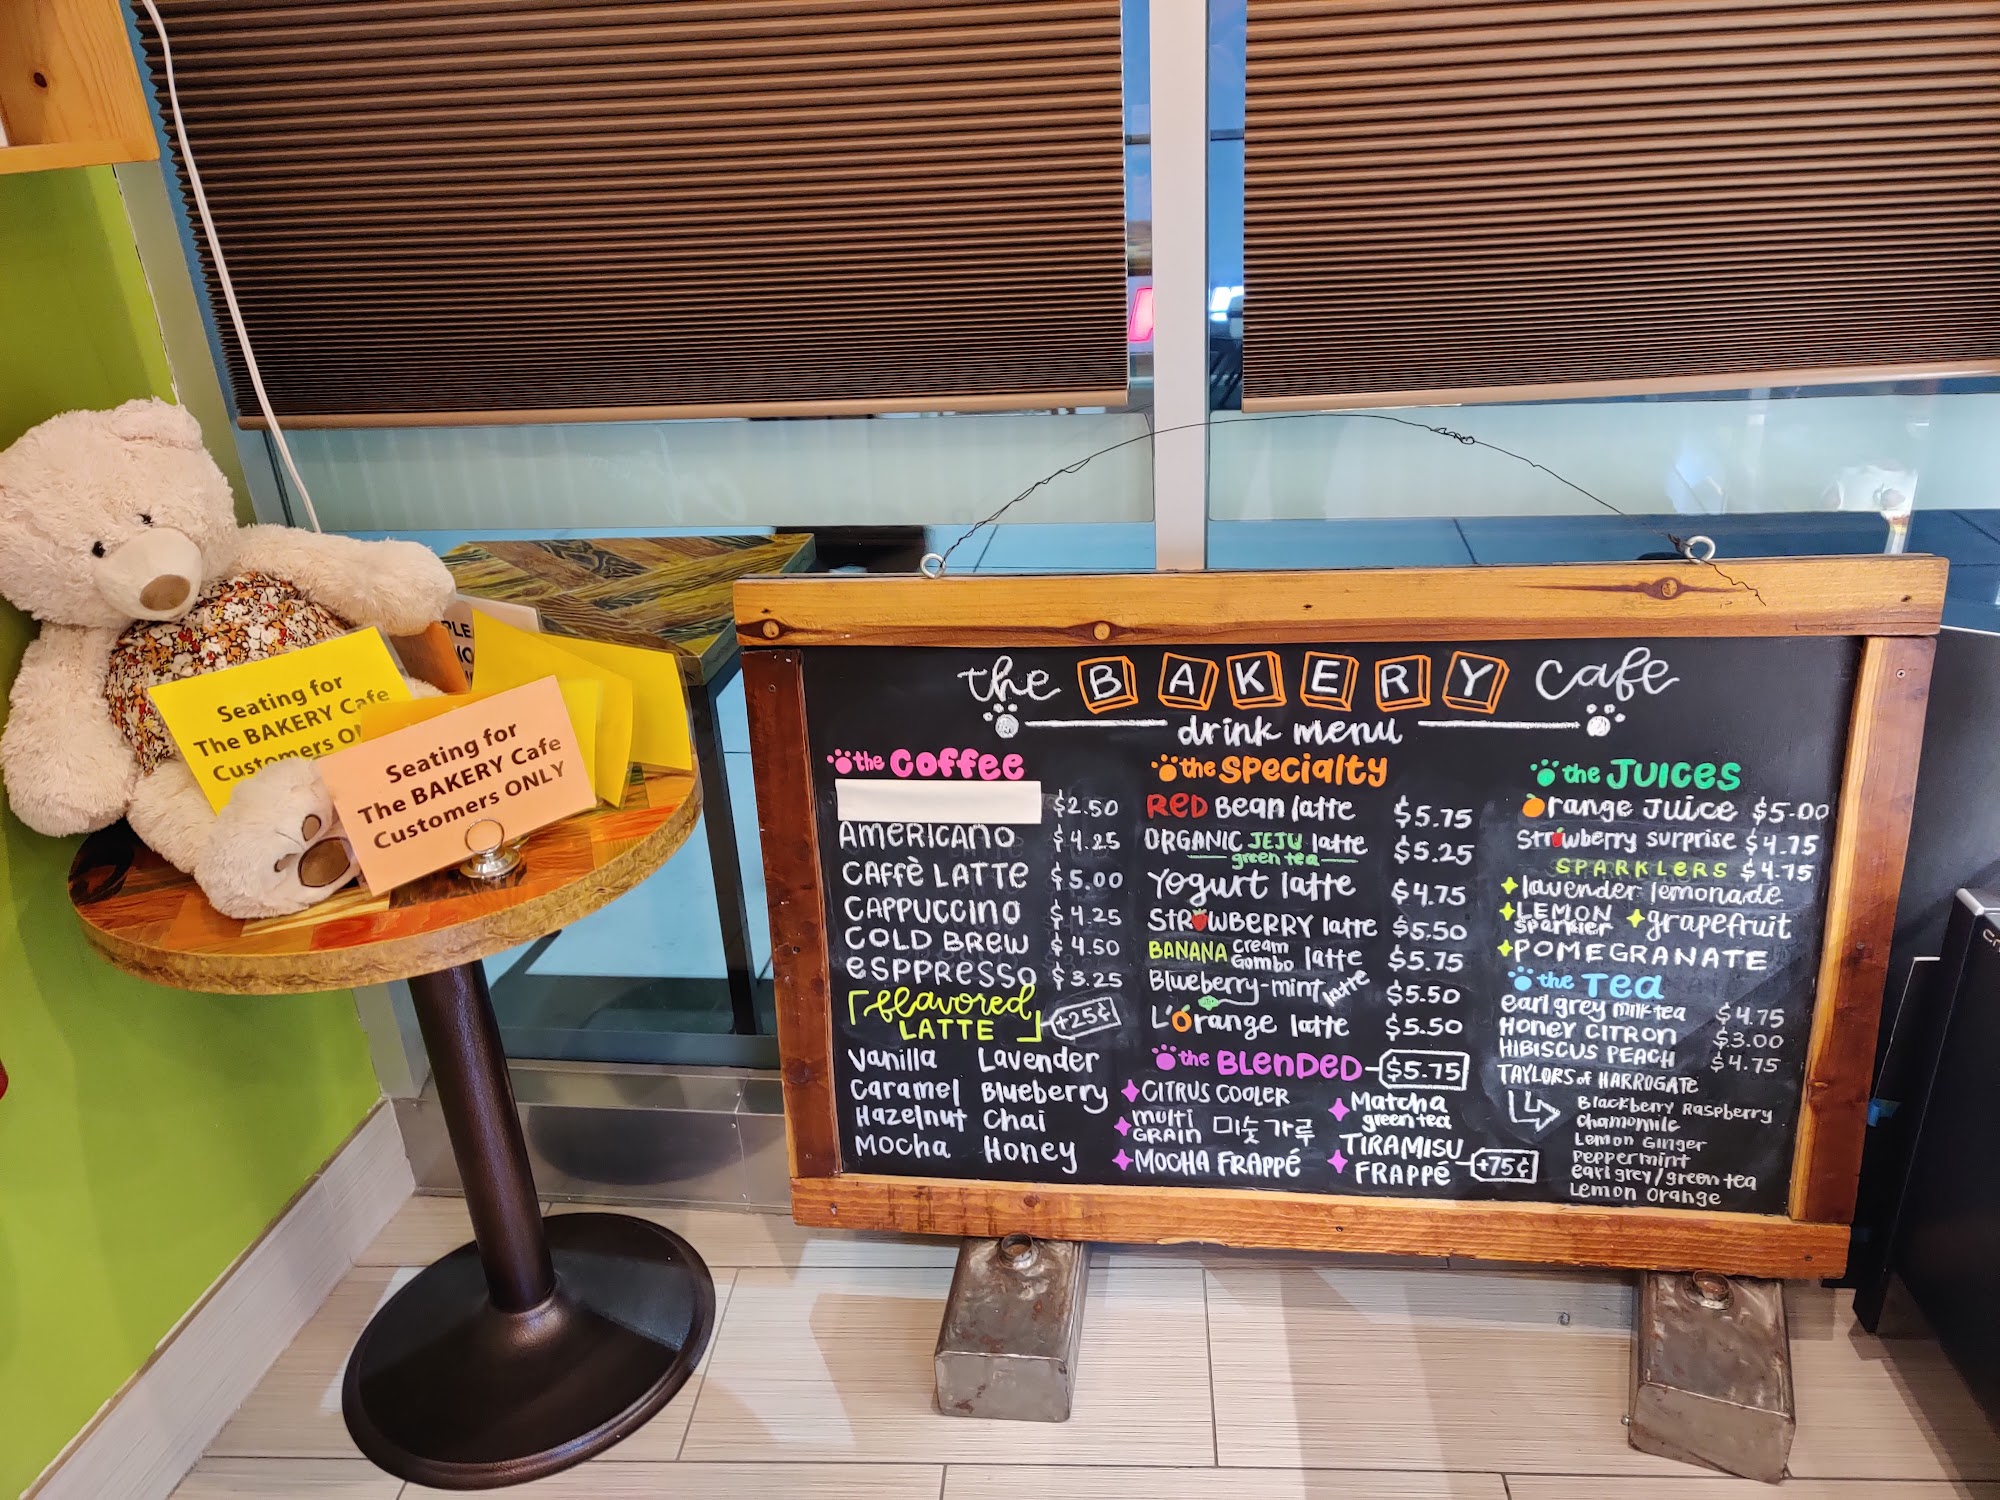 PLE
NO
Seating for
The BAKERY Cafe
Customers
Seating for
The BAKERY Cafe
Customers ONLY
the BAKERY cafe
drink menu
the coffee
$2.50
AMERICANO $4.25
CAFFÈ LATTE $5.00
CAPPUCCINO $4.25
COLD BREW $4.50
eSPPRESSO $3.25
flavored
LATTE +25¢
Vanilla Lavender
Caramel Blueberry
Hazelnut Chai
Mocha Honey
the SPECIALTY
RED Bean latte $5.75
ORGANIC JEJU latte $5.25
green tea
Yogurt latte $4.75
STRAWBERRY latte $5.50
BANANA cream combo latte $5.75
Blueberry-mint latte $5.50
L'Orange latte $5.50
the BLENDED $5.75
CITRUS COOLER
multi GRAIN 미숫가루
MOCHA FRAPPÉ
Matcha
green tea
TIRAMISU
FRAPPÉ +75¢
the JUICES
Orange Juice $5.00
Strawberry surprise $4.75
SPARKLERS $4.75
lavender lemonade
LEMON sparkler grapefruit
POMEGRANATE
the TEA
earl grey milk tea $4.75
HONEY CITRON $3.00
HIBISCUS PEACH $4.75
TAYLORS of HARROGATE
Blackberry Raspberry
chamomile
Lemon Ginger
Peppermint
earl grey/green tea
Lemon Orange